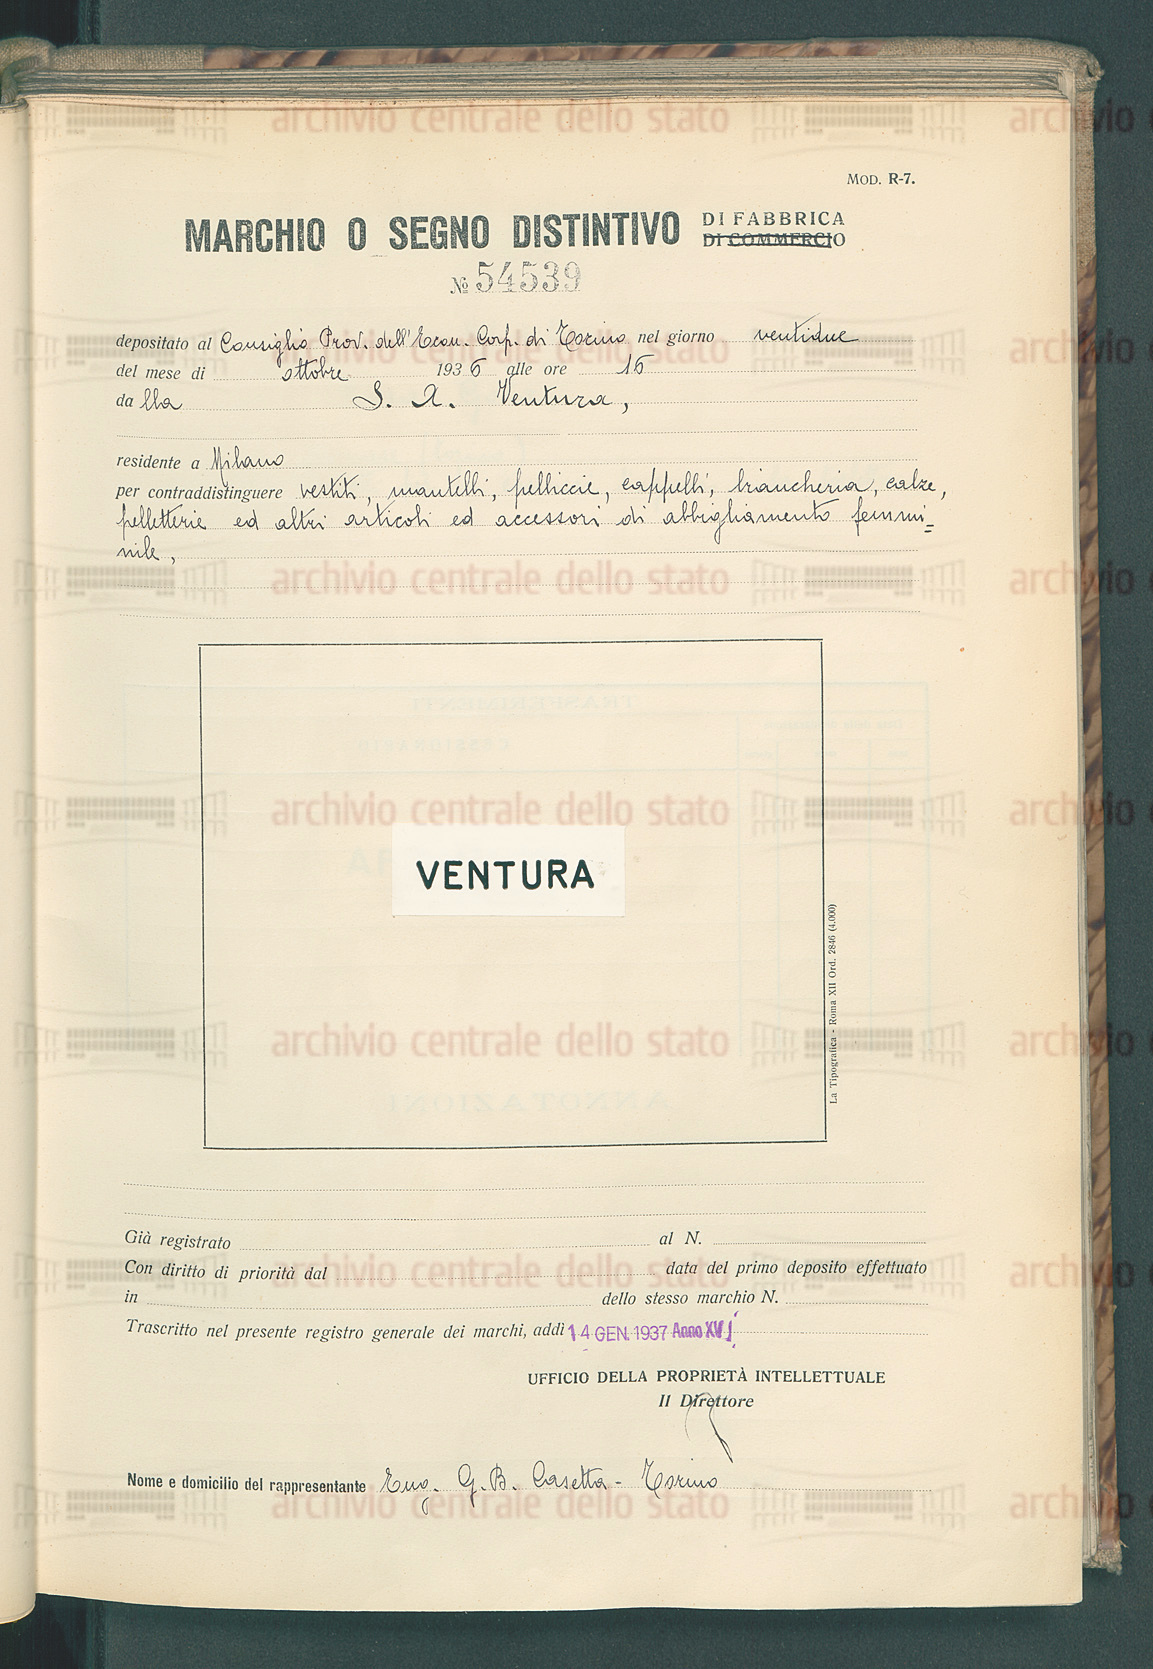 MOD. R-7.
MARCHIO O SEGNO DISTINTIVO DI FABBRICA
DI COMMERCIO
№ 54539
depositato al Consiglio Prov. dell'Econ. Corp. di Torino nel giorno ventidue
del mese di ottobre 1936 alle ore 16
da lla S. A. Ventura,
residente a Milano
per contraddistinguere vestiti, mantelli, pelliccie, cappelli, biancheria, calze,
pelletterie ed altri articoli ed accessori di abbigliamento femmi=
nile,
TRASFERIMENTI
VENTURA
La Tipografica - Roma XII Ord. 2846 (4.000)
ANNOTAZIONI
Già registrato al N.
Con diritto di priorità dal data del primo deposito effettuato
in dello stesso marchio N.
Trascritto nel presente registro generale dei marchi, addì 14 GEN. 1937 Anno XV
UFFICIO DELLA PROPRIETÀ INTELLETTUALE
Il Direttore
Nome e domicilio del rappresentante Ing. G. B. Casetta - Torino
archivio centrale dello stato